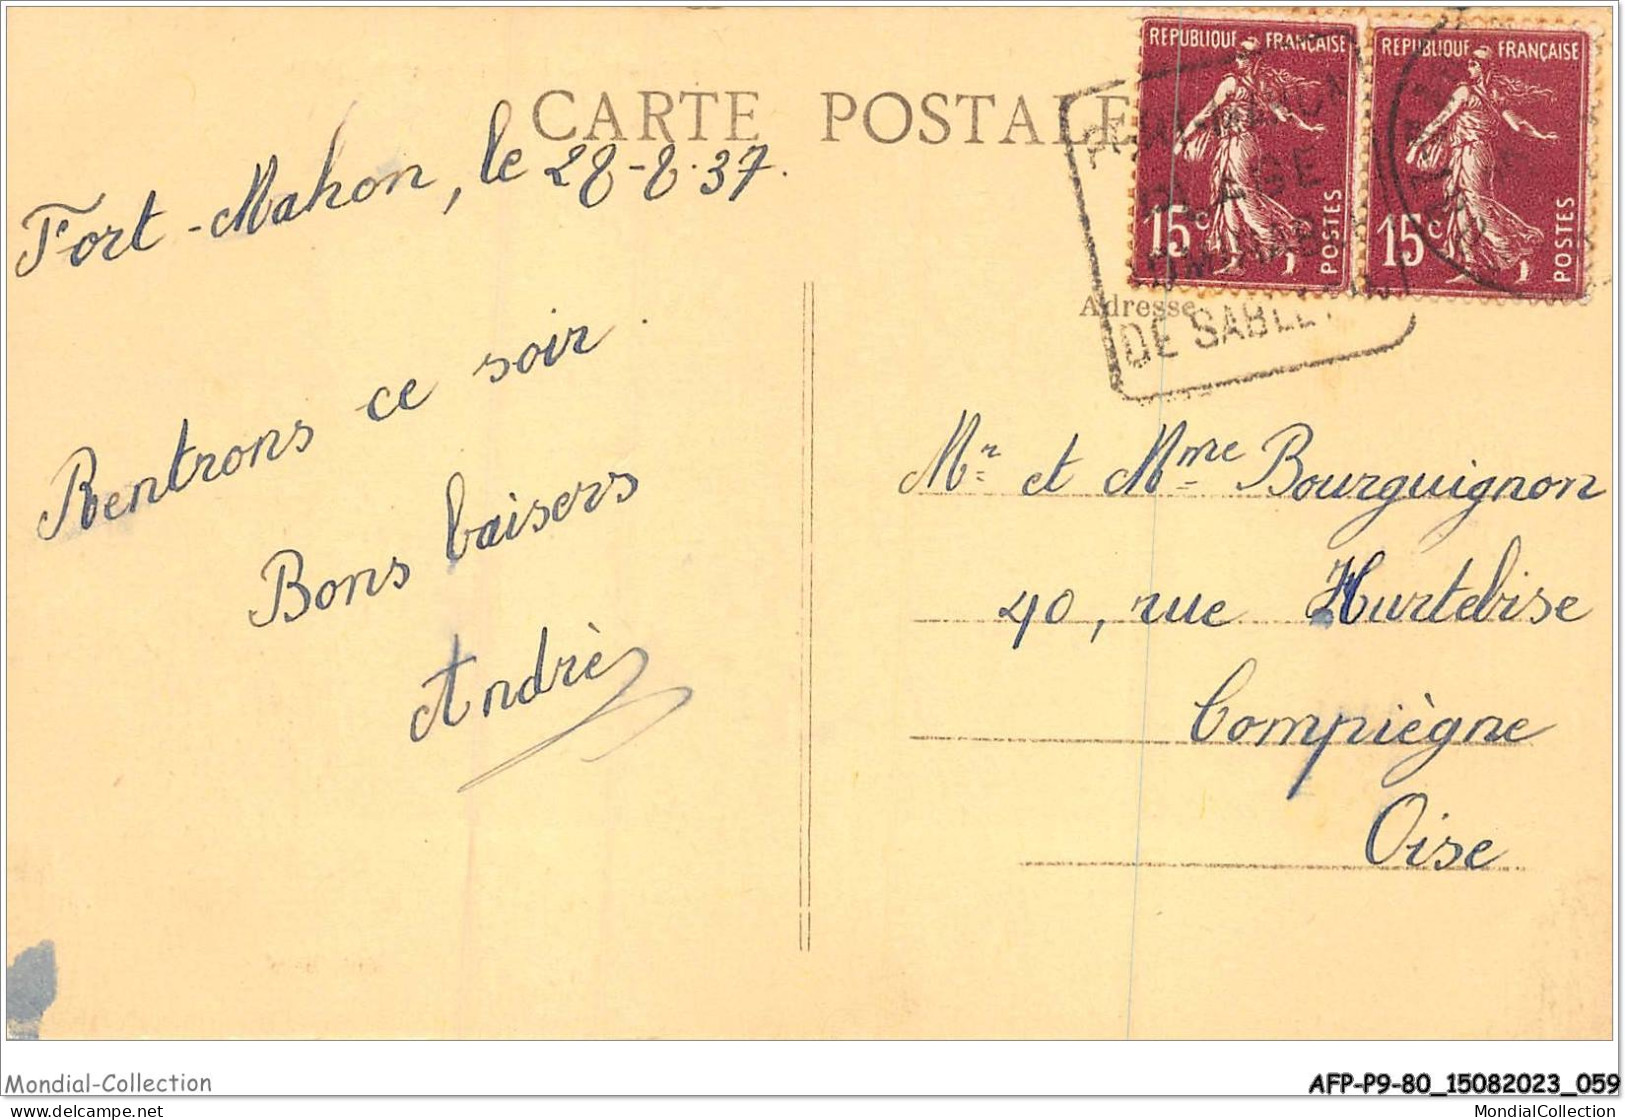 CARTE POSTALE
Fort-Mahon, le 28-8-37.
Rentrons ce soir.
Bons baisers
Andrè
RÉPUBLIQUE FRANÇAISE
15c
POSTES
RÉPUBLIQUE FRANÇAISE
15c
POSTES
PLAGE
DE SABLE
Adresse
Mr et Mme Bourguignon
40, rue Hurtebise
Compiègne
Oise
Mondial-Collection
AFP-P9-80_15082023_059
delcampe.net
MondialCollection